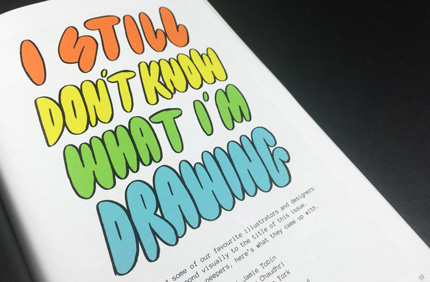 I STILL
DON'T KNOW
WHAT I'M
DRAWING
some of our favourite illustrators and designers
ond visually to the title of this issue.
peepers, here's what they came up with.
Jamie Tobin
Chaudhri
York